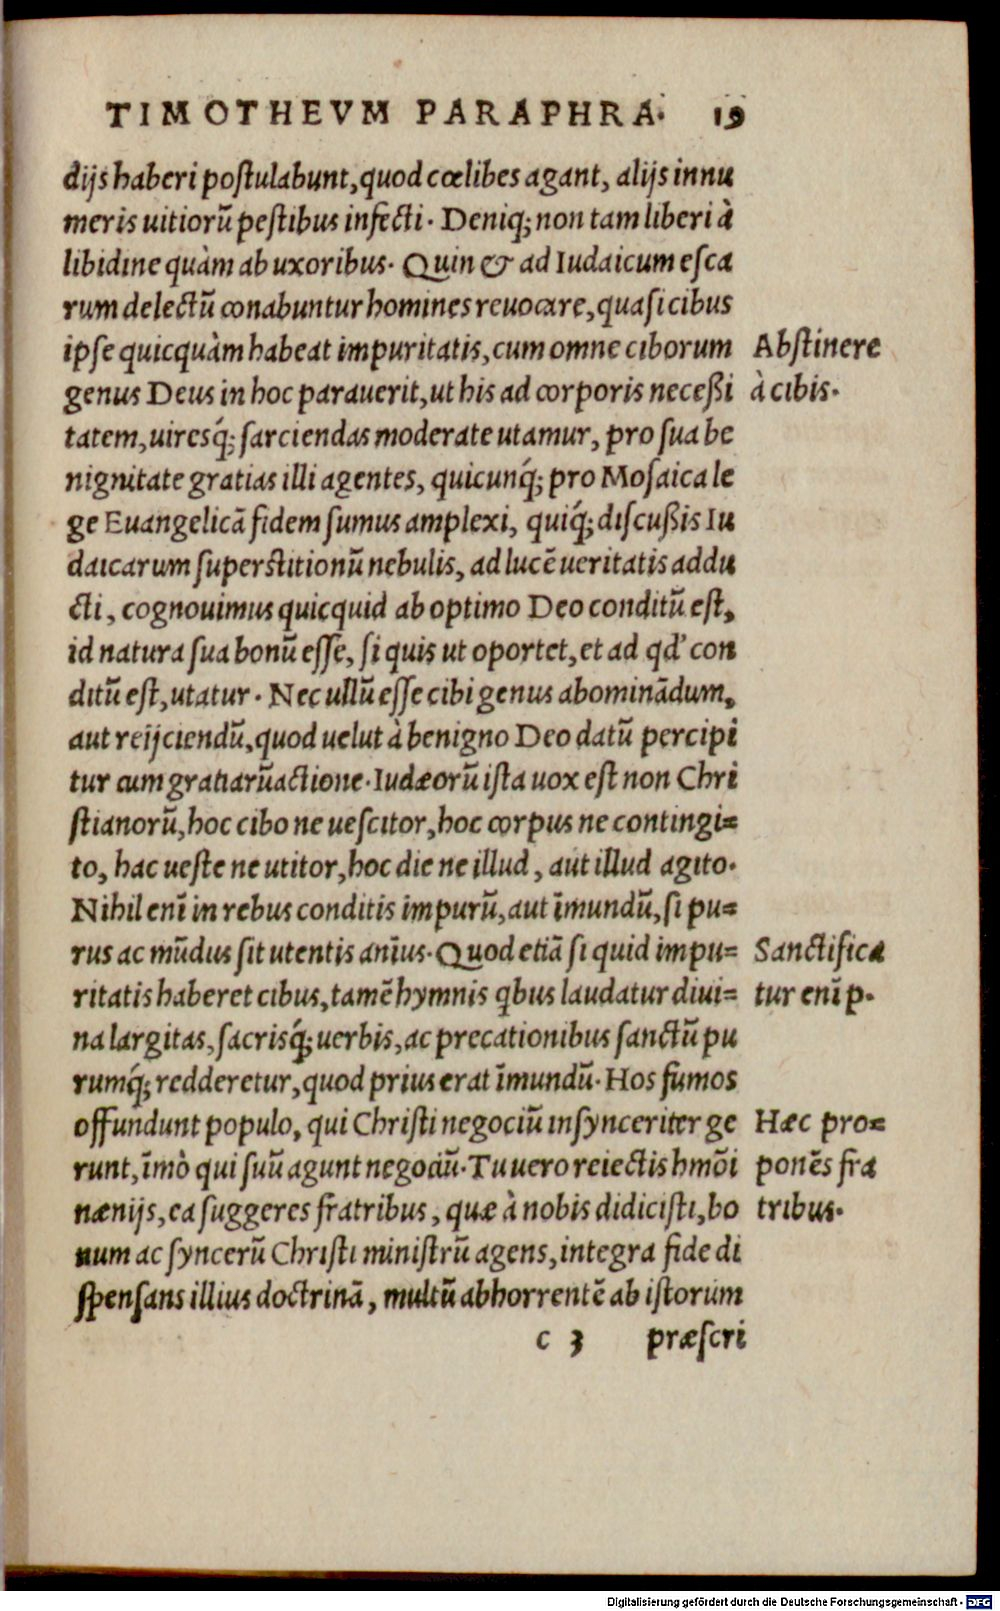 TIMOTHEVM PARAPHRA. 19
dijs haberi poſtulabunt, quod cœlibes agant, alijs innu
meris uitiorũ peſtibus infecti. Deniq; non tam liberi à
libidine quàm ab uxoribus. Quin & ad Iudaicum eſca
rum delectũ conabuntur homines reuocare, quaſi cibus
ipſe quicquàm habeat impuritatis, cum omne ciborum
Abſtinere
genus Deus in hoc parauerit, ut his ad corporis neceßi
à cibis.
tatem, uiresq́; ſarciendas moderate utamur, pro ſua be
nignitate gratias illi agentes, quicunq́; pro Moſaica le
ge Euangelicã fidem ſumus amplexi, quiq́; diſcußis Iu
daicarum superſtitionũ nebulis, ad lucẽ ueritatis addu
cti, cognouimus quicquid ab optimo Deo conditũ eſt,
id natura ſua bonũ eſſe, ſi quis ut oportet, et ad qd' con
ditũ eſt, utatur. Nec ullũ eſſe cibi genus abominãdum,
aut reijciendũ, quod uelut à benigno Deo datũ percipi
tur cum gratiarũactione. Iudæorũ iſta uox eſt non Chri
ſtianorũ, hoc cibo ne ueſcitor, hoc corpus ne contingi=
to, hac ueſte ne utitor, hoc die ne illud, aut illud agito.
Nihil enĩ in rebus conditis impurũ, aut ĩmundũ, ſi pu=
rus ac mũdus ſit utentis anĩus. Quod etiã ſi quid impu=
Sanctifica
ritatis haberet cibus, tamẽ hymnis qbus laudatur diui=
tur enĩ p.
na largitas, ſacrisq́; uerbis, ac precationibus ſanctũ pu
rumq́; redderetur, quod prius erat ĩmundũ. Hos fumos
offundunt populo, qui Chriſti negociũ inſynceriter ge
Hæc pro=
runt, ĩmò qui ſuũ agunt negociũ. Tu uero reiectis hmõi
ponẽs fra
nænijs, ea ſuggeres fratribus, quæ à nobis didiciſti, bo
tribus.
num ac ſyncerũ Chriſti miniſtrũ agens, integra fide di
ſpenſans illius doctrinã, multũ abhorrentẽ ab iſtorum
c 3 præſcri
Digitalisierung gefördert durch die Deutsche Forschungsgemeinschaft - DFG